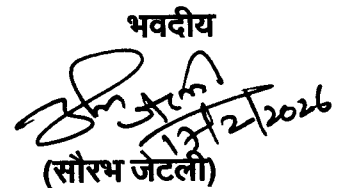 भवदीय
17/2/2026
(सौरभ जेटली)